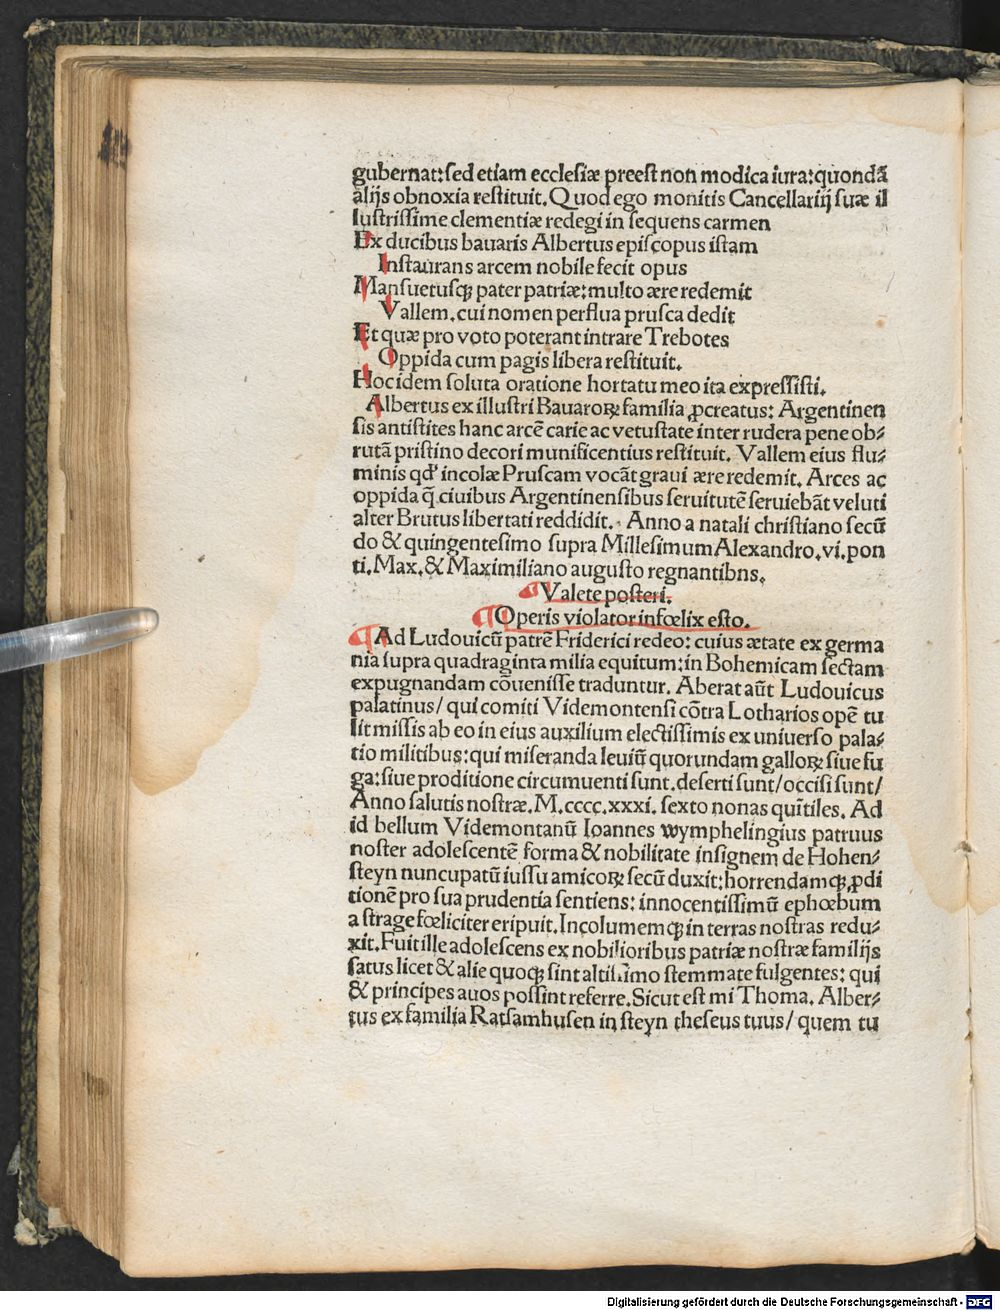 gubernat: sed etiam ecclesiæ preest non modica iura: quondā
alijs obnoxia restituit. Quod ego monitis Cancellarij suæ il
lustrissime clementiæ redegi in sequens carmen
Ex ducibus bauaris Albertus episcopus istam
Instaurans arcem nobile fecit opus
Mansuetusqꝫ pater patriæ: multo ære redemit
Vallem. cui nomen perflua prusca dedit
Et quæ pro voto poterant intrare Trebotes
Oppida cum pagis libera restituit.
Hoc idem soluta oratione hortatu meo ita expressisti.
Albertus ex illustri Bauaroꝝ familia ꝓcreatus: Argentinen
sis antistites hanc arcē carie ac vetustate inter rudera pene ob⸗
rutā pristino decori munificentius restituit. Vallem eius flu⸗
minis qd' incolæ Pruscam vocāt graui ære redemit. Arces ac
oppida q̄ ciuibus Argentinensibus seruitutē seruiebāt veluti
alter Brutus libertati reddidit. Anno a natali christiano secū
do & quingentesimo supra Millesimum Alexandro. vi. pon
ti. Max. & Maximiliano augusto regnantibns.
¶ Valete posteri.
¶ Operis violator infœlix esto.
¶ Ad Ludouicū patrē Friderici redeo: cuius ætate ex germa
nia supra quadraginta milia equitum: in Bohemicam sectam
expugnandam cōuenisse traduntur. Aberat aūt Ludouicus
palatinus/ qui comiti Videmontensi cōtra Lotharios opē tu
lit missis ab eo in eius auxilium electissimis ex uniuerso pala⸗
tio militibus: qui miseranda leuiū quorundam galloꝝ siue fu
ga: siue proditione circumuenti sunt. deserti sunt/ occisi sunt/
Anno salutis nostræ. M. cccc. xxxi. sexto nonas quītiles. Ad
id bellum Videmontanū Ioannes wymphelingius patruus
noster adolescentē forma & nobilitate insignem de Hohen⸗
steyn nuncupatū iussu amicoꝝ secū duxit: horrendamqꝫ ꝓdi
tionē pro sua prudentia sentiens: innocentissimū ephœbum
a strage fœliciter eripuit. Incolumemqꝫ in terras nostras redu⸗
xit. Fuit ille adolescens ex nobilioribus patriæ nostræ familijs
satus licet & alie quoqꝫ sint altissimo stemmate fulgentes: qui
& principes auos possint referre. Sicut est mi Thoma. Alber⸗
tus ex familia Ratsamhusen in steyn theseus tuus/ quem tu
Digitalisierung gefördert durch die Deutsche Forschungsgemeinschaft - DFG